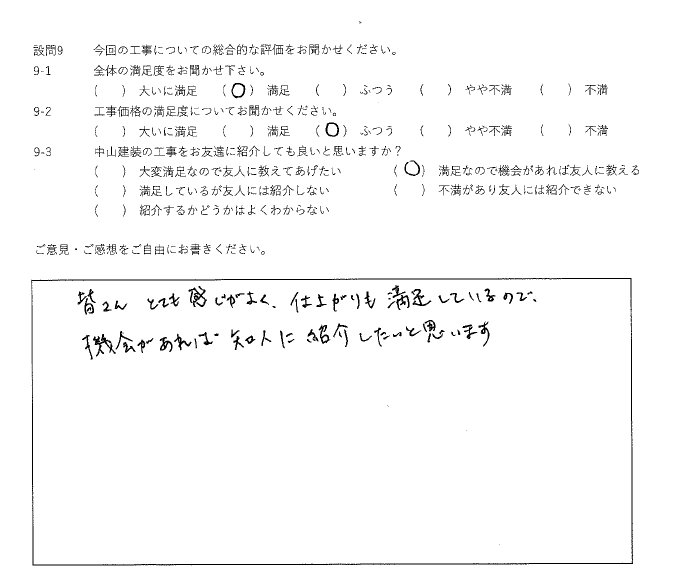 設問9 今回の工事についての総合的な評価をお聞かせください。
9-1 全体の満足度をお聞かせ下さい。
( ) 大いに満足 (○) 満足 ( ) ふつう ( ) やや不満 ( ) 不満
9-2 工事価格の満足度についてお聞かせください。
( ) 大いに満足 ( ) 満足 (○) ふつう ( ) やや不満 ( ) 不満
9-3 中山建装の工事をお友達に紹介しても良いと思いますか？
( ) 大変満足なので友人に教えてあげたい (○) 満足なので機会があれば友人に教える
( ) 満足しているが友人には紹介しない ( ) 不満があり友人には紹介できない
( ) 紹介するかどうかはよくわからない
ご意見・ご感想をご自由にお書きください。
皆さん とても感じがよく、仕上がりも満足しているので、
機会があれば知人に紹介したいと思います